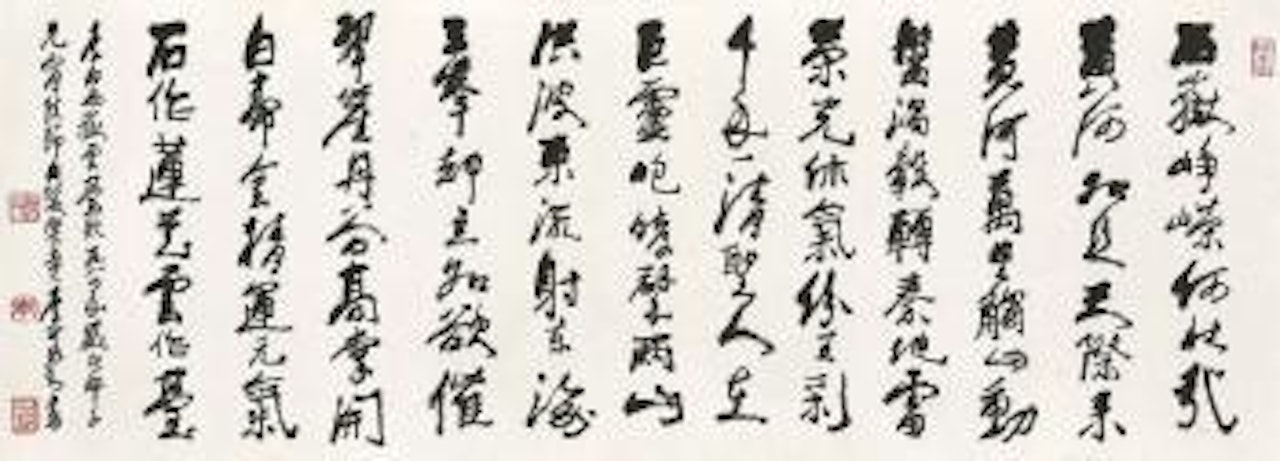 西嶽崢嶸何壯哉
黃河如絲天際來
黃河萬里觸山動
盤渦轂轉秦地雷
榮光休氣紛五彩
千年一清聖人在
巨靈咆哮擘兩山
洪波噴流射東海
三峯卻立如欲摧
翠崖丹谷高掌開
白帝金精運元氣
石作蓮花雲作臺
李白西嶽雲臺歌